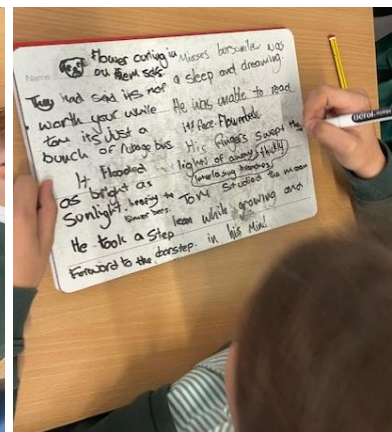 Name
Flower curling in
on them selfs.
They Had said its not
worth your while
tom its just a
bunch of rubage bins
It Flooded
as bright as
Sunlight.
flower beds.
He took a Step
Forward to the doorstep.
Misses barsomile was
a sleep and dreaming.
He was unable to read
its face. Flowerbeds.
His Fingers swept the
lights of away thickly
Interlasing branches
Tom studied the moon
lean while growing and
in his Mind